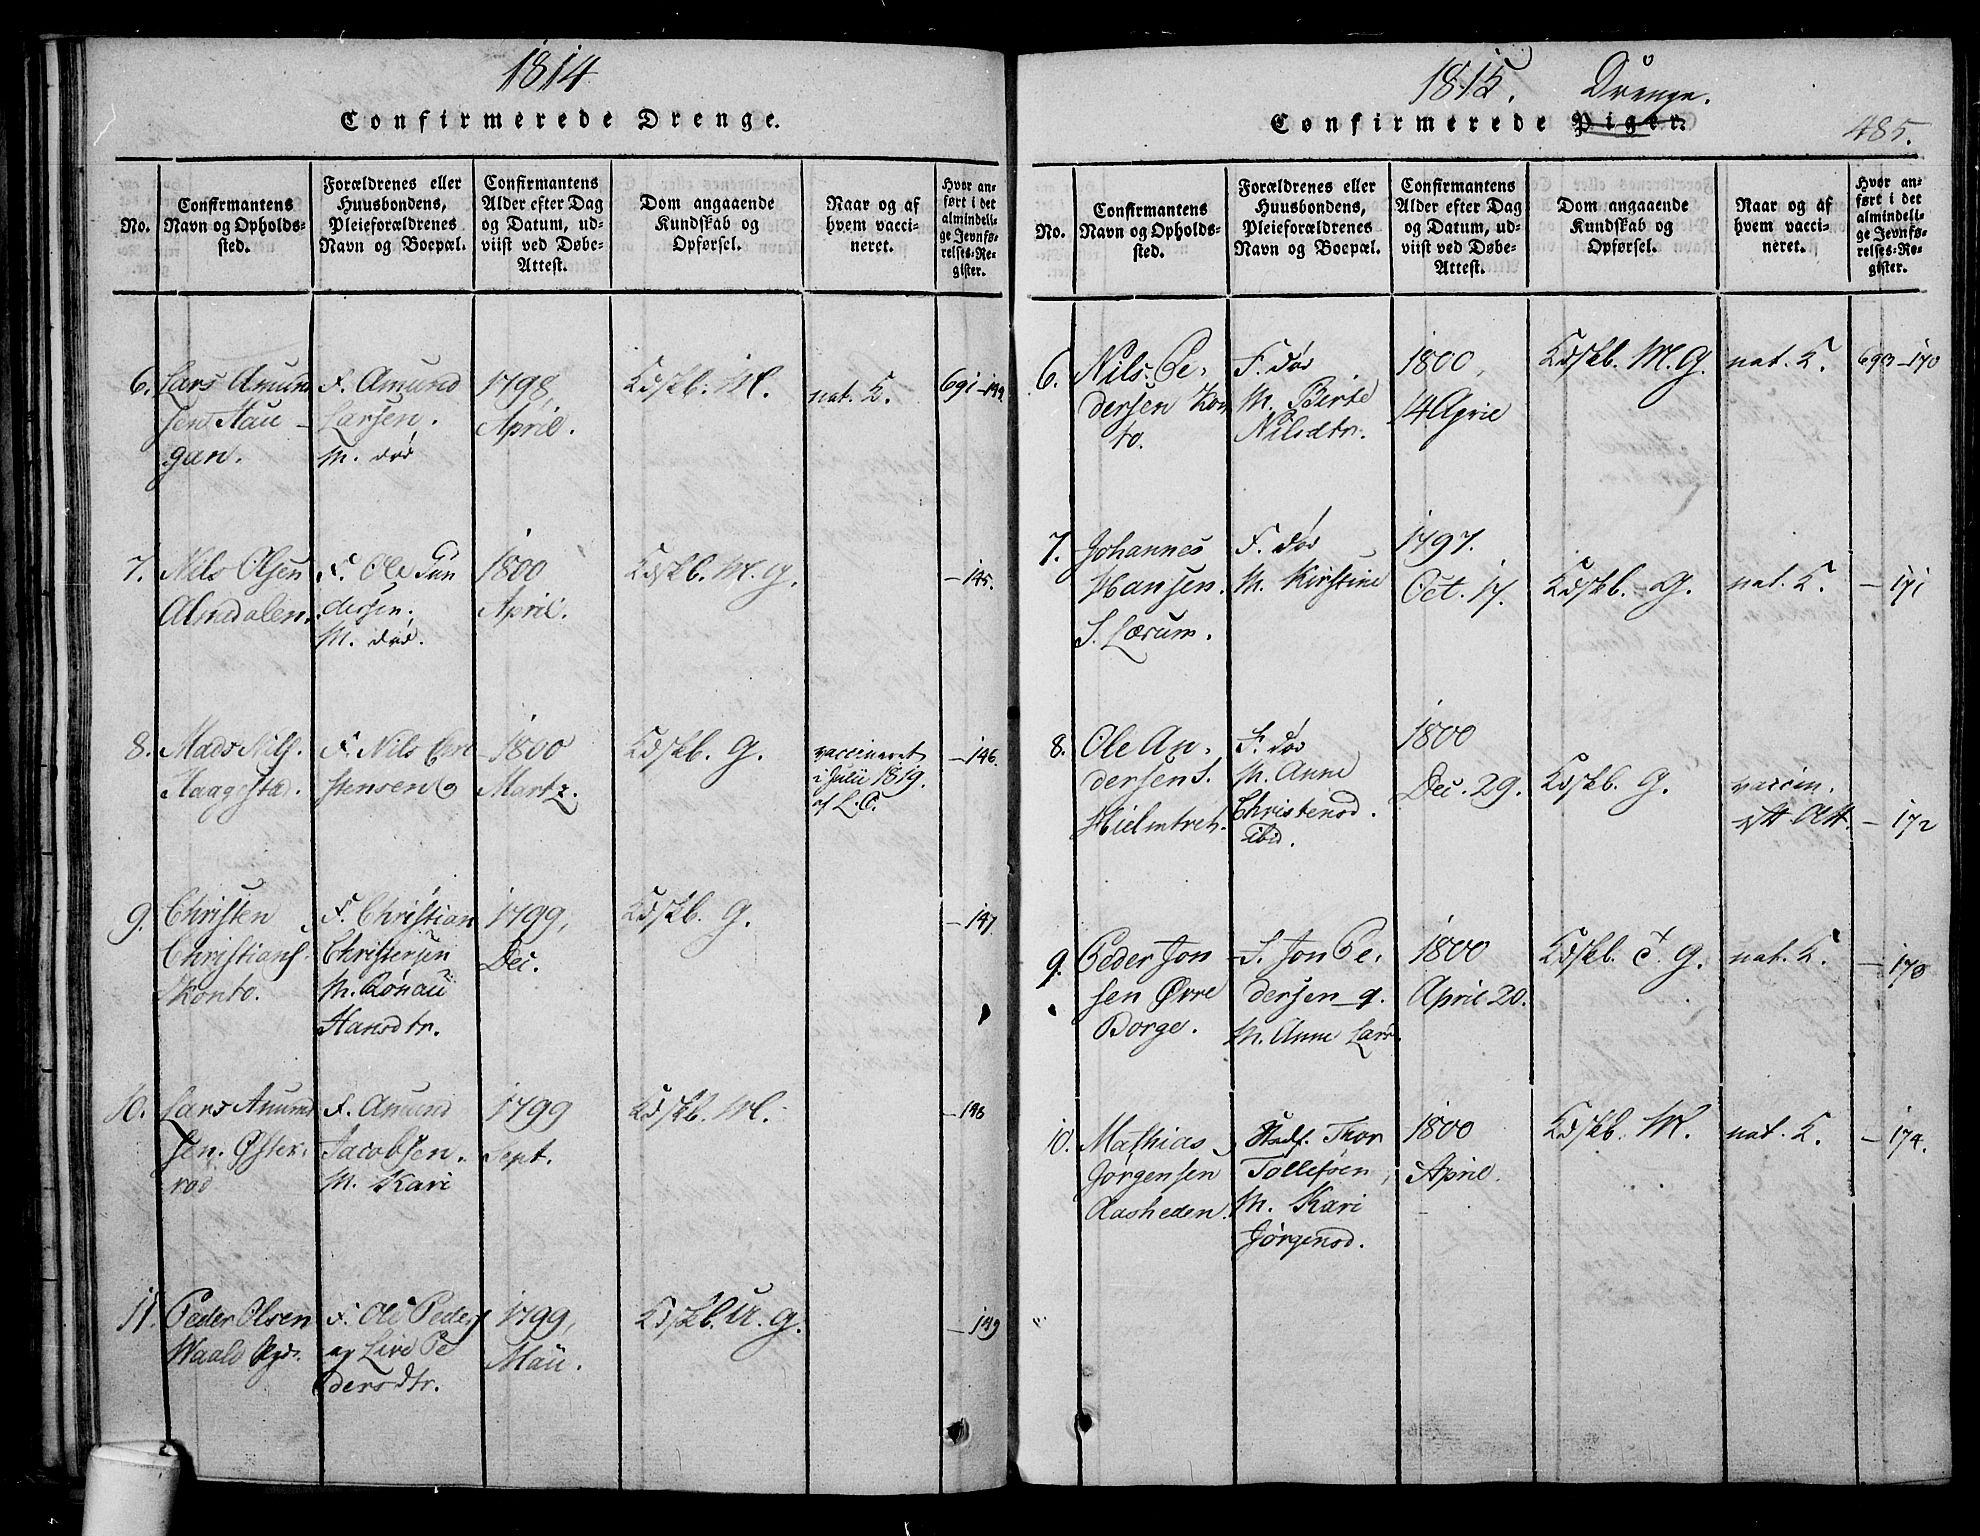 1814
Confirmerede Drenge.
No.
Confirmantens
Navn og Opholds-
sted.
Forældrenes eller
Huusbondens,
Pleieforældrenes
Navn og Boepæl.
Confirmantens
Alder efter Dag
og Datum, ud-
viist ved Døbe-
Attest.
Dom angaaende
Kundskab og
Opførsel.
Naar og af
hvem vacci-
neret.
Hvor an-
ført i det
almindeli-
ge Jevnfø-
relses-Re-
gister.
6.
Lars Amun
sen Hau-
gan.
F. Amund
Larsen.
M. død
1798,
April.
Kdskb. M.
nat. K.
691-144.
7.
Nils Olsen
Almdalen.
F. Ole Gun
dersen.
M. død.
1800
April.
Kdskb. M. G.
-145.
8.
Mads Nils.
Haagestad.
F. Nils Chri
stensen
1800
Martz.
Kdskb. G.
vaccineret
i Julii 1819.
af L. C.
-146.
9.
Christen
Christians.
Konto.
F. Christian
Christensen
M. Rönau
Hansdtr.
1799,
Dec.
Kdskb. G.
-147
10.
Lars Amund
sen. Øster-
rød
F. Amund
Jacobsen.
M. Kari
1799
Sept.
Kdskb. M.
-148
11.
Peder Olsen
Waale
F. Ole Peders
og Live Pe
dersdtr.
1799,
Maii.
Kdskb. M. G.
-149
1815. Drenge.
Confirmerede Piger.
485.
No.
Confirmantens
Navn og Opholds-
sted.
Forældrenes eller
Huusbondens,
Pleieforældrenes
Navn og Boepæl.
Confirmantens
Alder efter Dag
og Datum, ud-
viist ved Døbe-
Attest.
Dom angaaende
Kundskab og
Opførsel.
Naar og af
hvem vacci-
neret.
Hvor an-
ført i det
almindeli-
ge Jevnfø-
relses-Re-
gister.
6.
Nils Pe-
dersen Kon
to.
F. død
M. Birte
Nilsdtr.
1800,
14 April
Kdskb. M. G.
nat. K.
693-170
7.
Johannes
Hansen.
S. Lærum.
F. død
M. Kirstine
1797.
Oct. 17.
Kdskb. G.
nat. K.
-171
8.
Ole An-
dersen S.
Hielmtvet.
F. død
M. Anne
Christensd.
ibid.
1800
Dec. 29.
Kdskb. G.
vaccin.
Att.
-172
9.
Peder Jon
sen Øvre
Borge.
F. Jon Pe-
dersen
M. Anne Lars
1800
April 20.
Kdskb. T. G.
nat. K.
-173
10.
Mathias
Jørgensen
Aasheden.
Stedf. Thor
Tollefsen,
M. Kari
Jørgensd.
1800
April.
Kdskb. M.
nat. K.
-174.